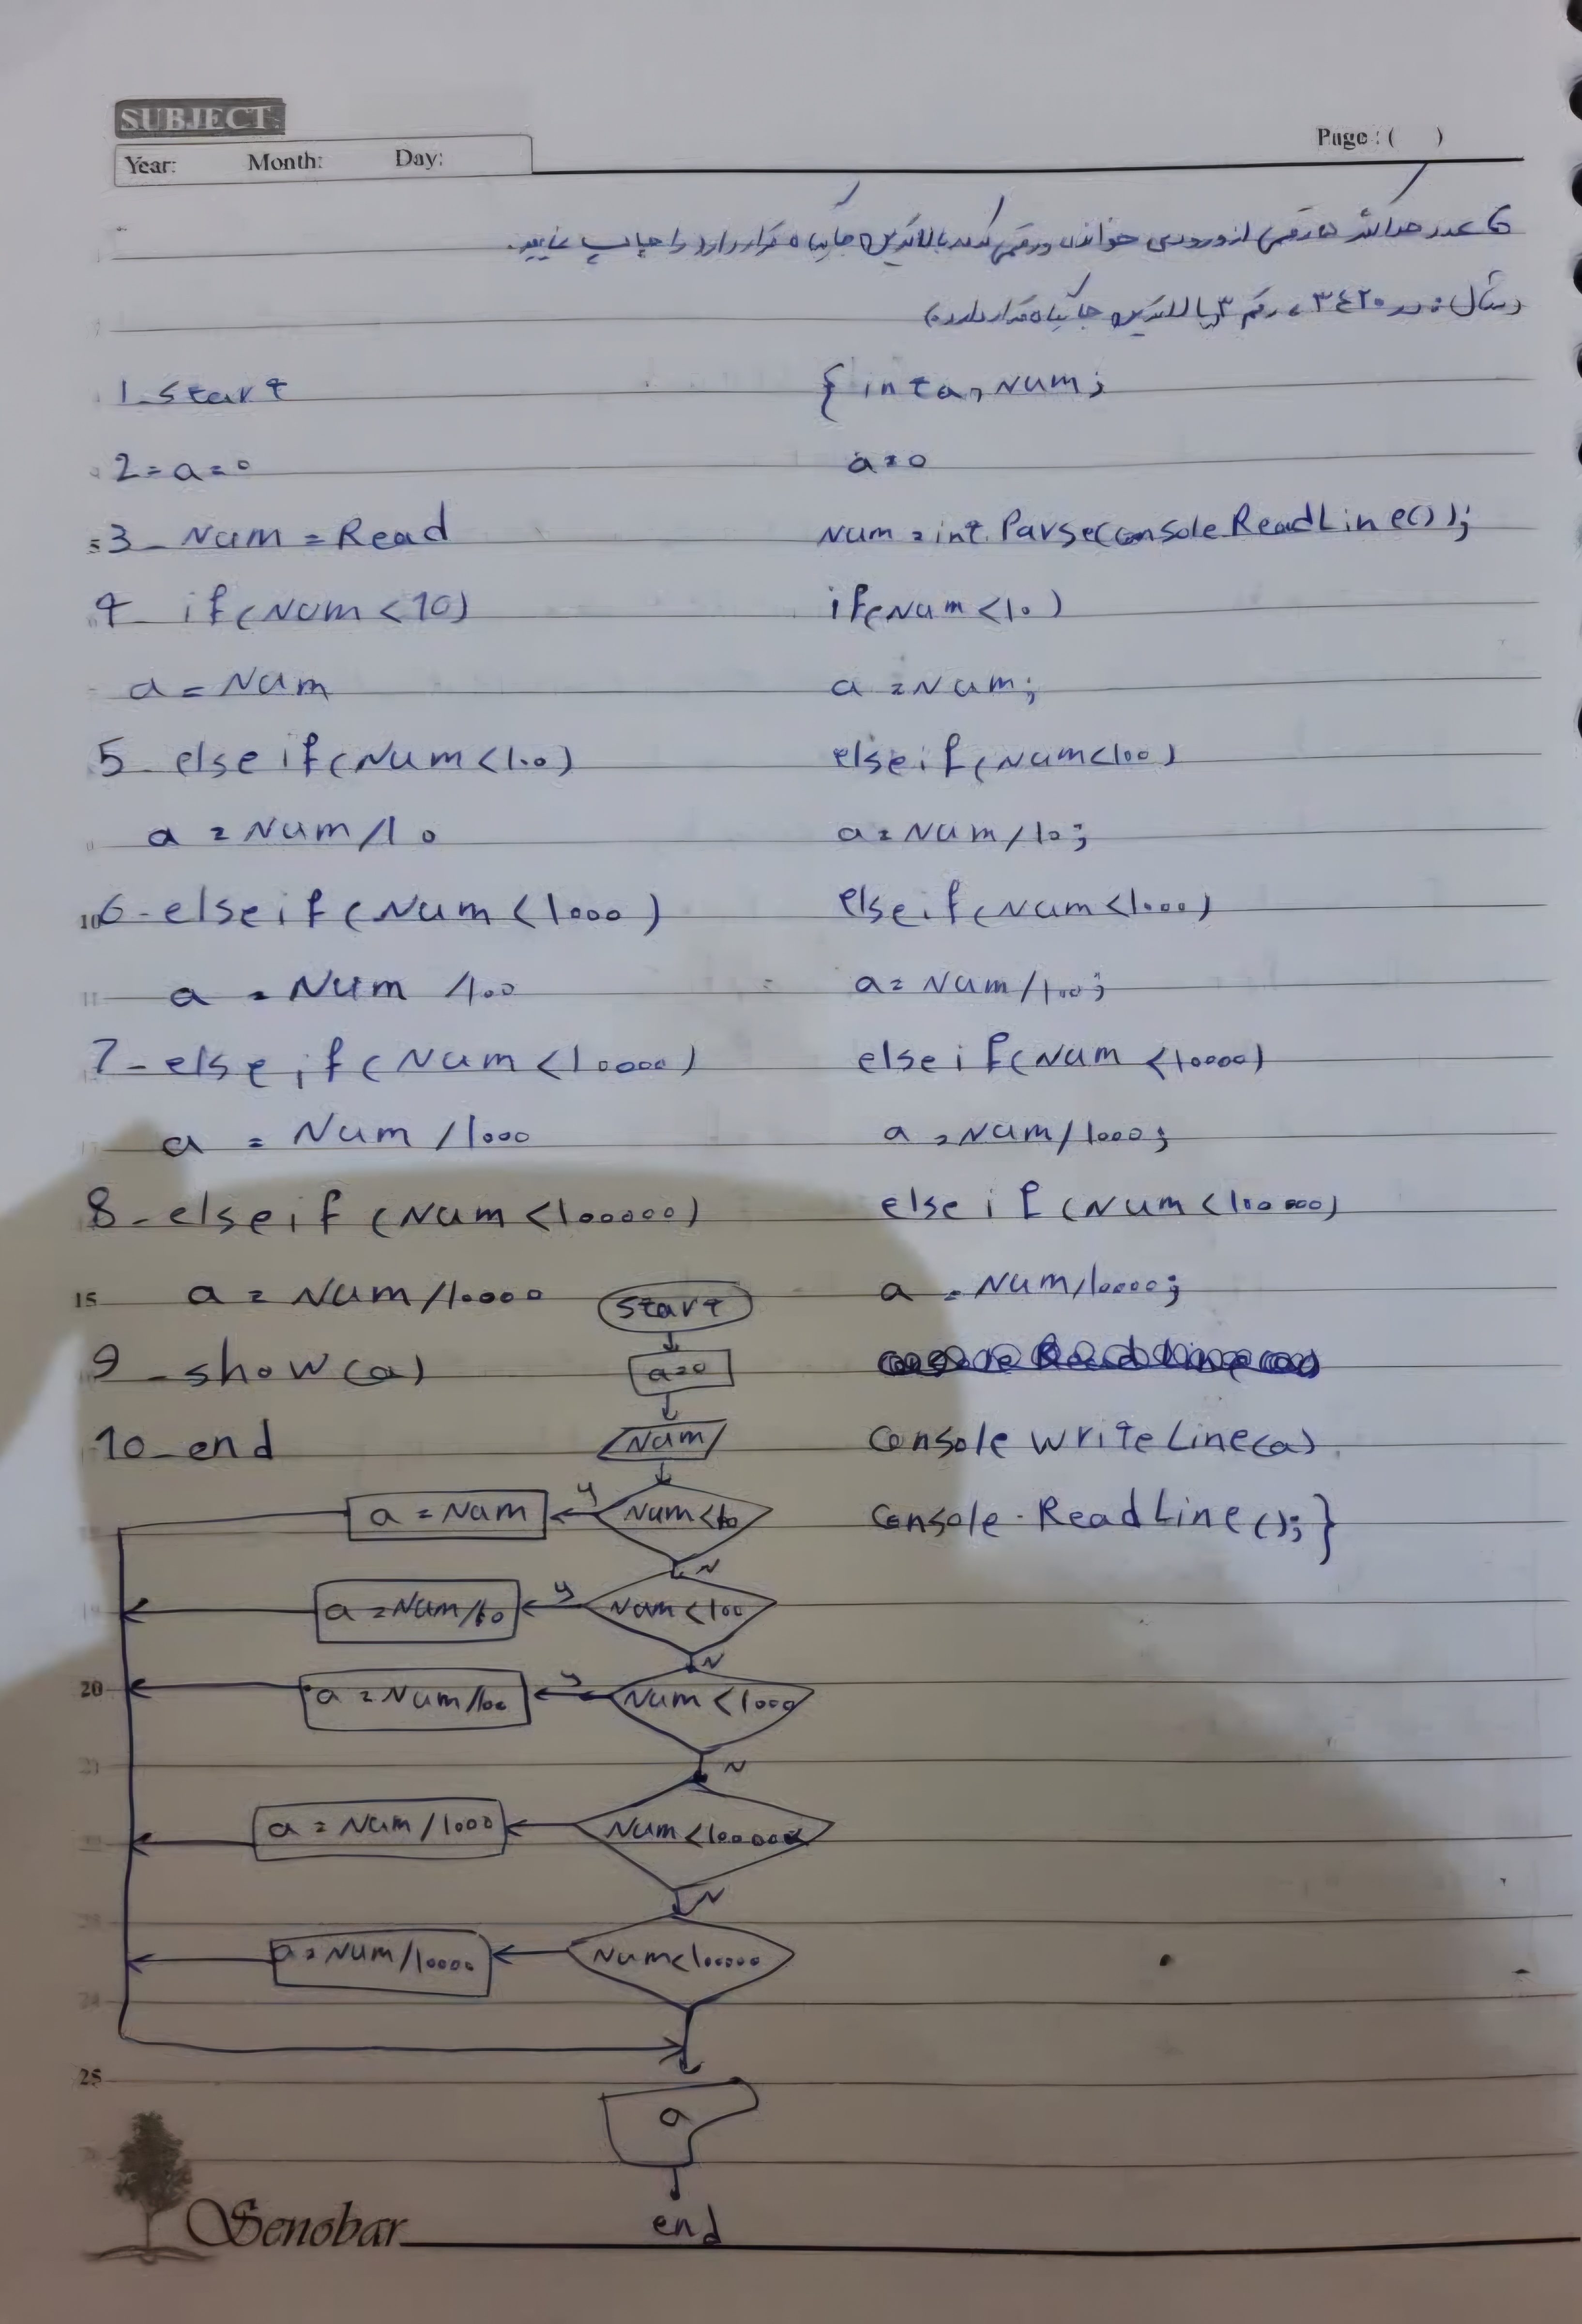 SUBJECT:
Year: Month: Day:
Page : ( )
6 عدد حداکثر ۵ رقمی از ورودی خوانده و رقمی که در بالاترین جایگاه قرار دارد را چاپ نمایید.
(مثال: در ۳۴۲۰، رقم ۳ بالاترین جایگاه قرار دارد)
1_Start
2=a=0
3_Num=Read
4_if(Num<10)
a=Num
5_else if(Num<100)
a=Num/10
6-else if(Num<1000)
a=Num/100
7-else if(Num<10000)
a=Num/1000
8-else if(Num<100000)
a=Num/10000
9_show(a)
10_end
{int a,Num;
a=0
Num=int.Parse(console.ReadLine());
if(Num<10)
a=Num;
else if(Num<100)
a=Num/10;
else if(Num<1000)
a=Num/100;
else if(Num<10000)
a=Num/1000;
else if(Num<100000)
a=Num/10000;
Console WriteLine(a)
Console.ReadLine();}
start
a=0
Num
Num<10
y
a=Num
N
Num<100
y
a=Num/10
N
Num<1000
y
a=Num/100
N
a=Num/1000
N
Num<100000
a=Num/10000
a
end
5
10
11
15
20
21
22
23
24
25
Senobar